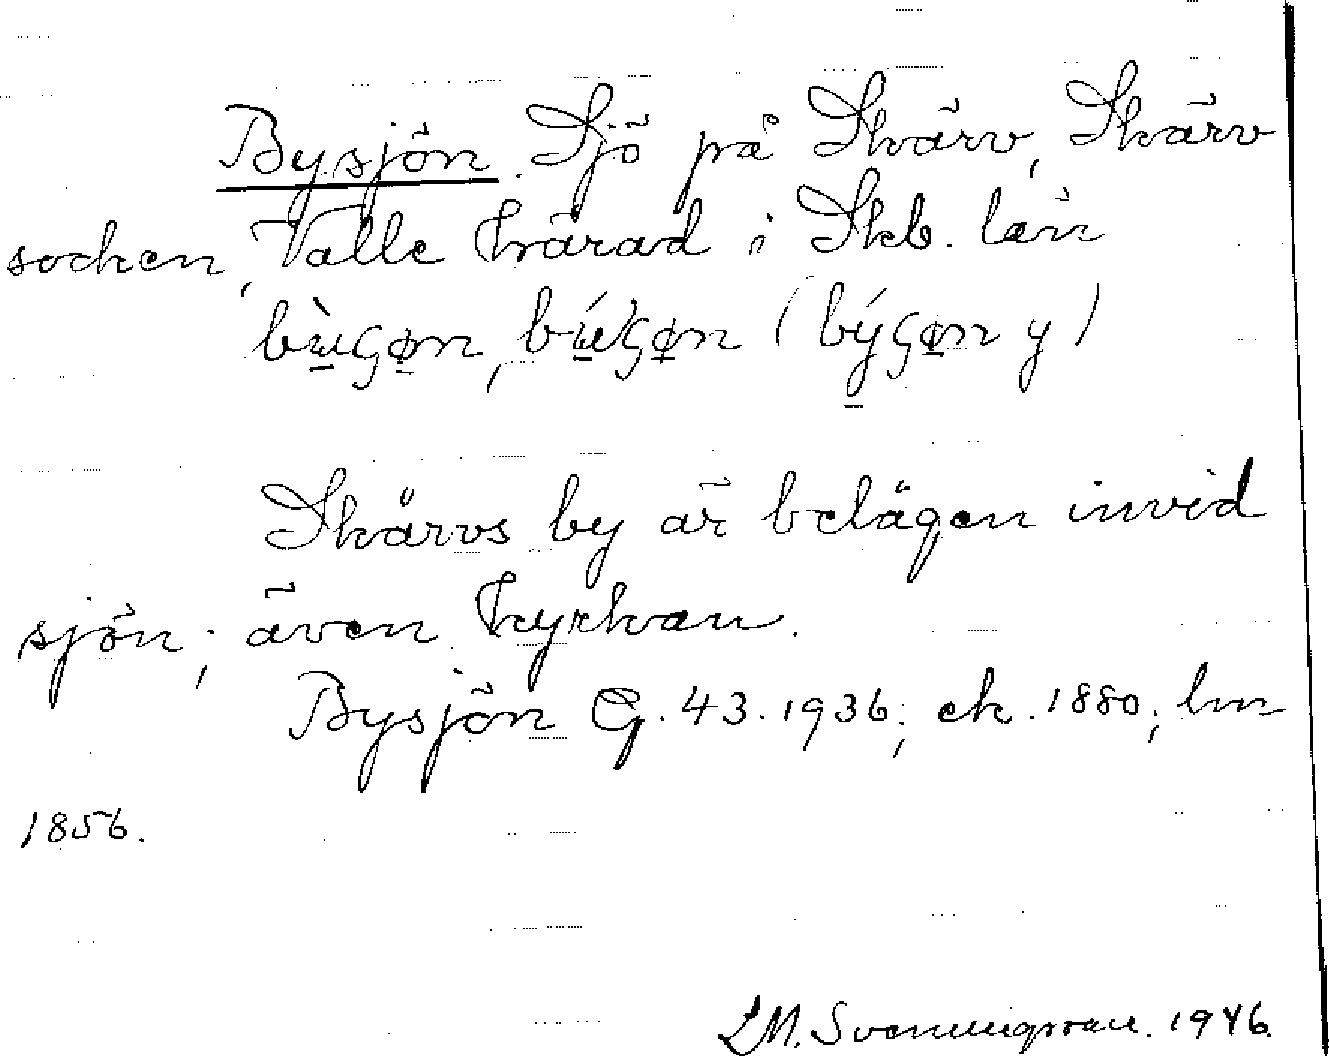 Bysjön. Sjö på Skärv, Skärv
socken, Valle härad i Skb. län
bʉ̀ςøn, bʉ́ςøn (býςøn y)
Skärvs by är belägen invid
sjön; även kyrkan.
Bysjön G. 43. 1936; ek. 1880; hm
1856.
LM. Svenningsson. 1946.